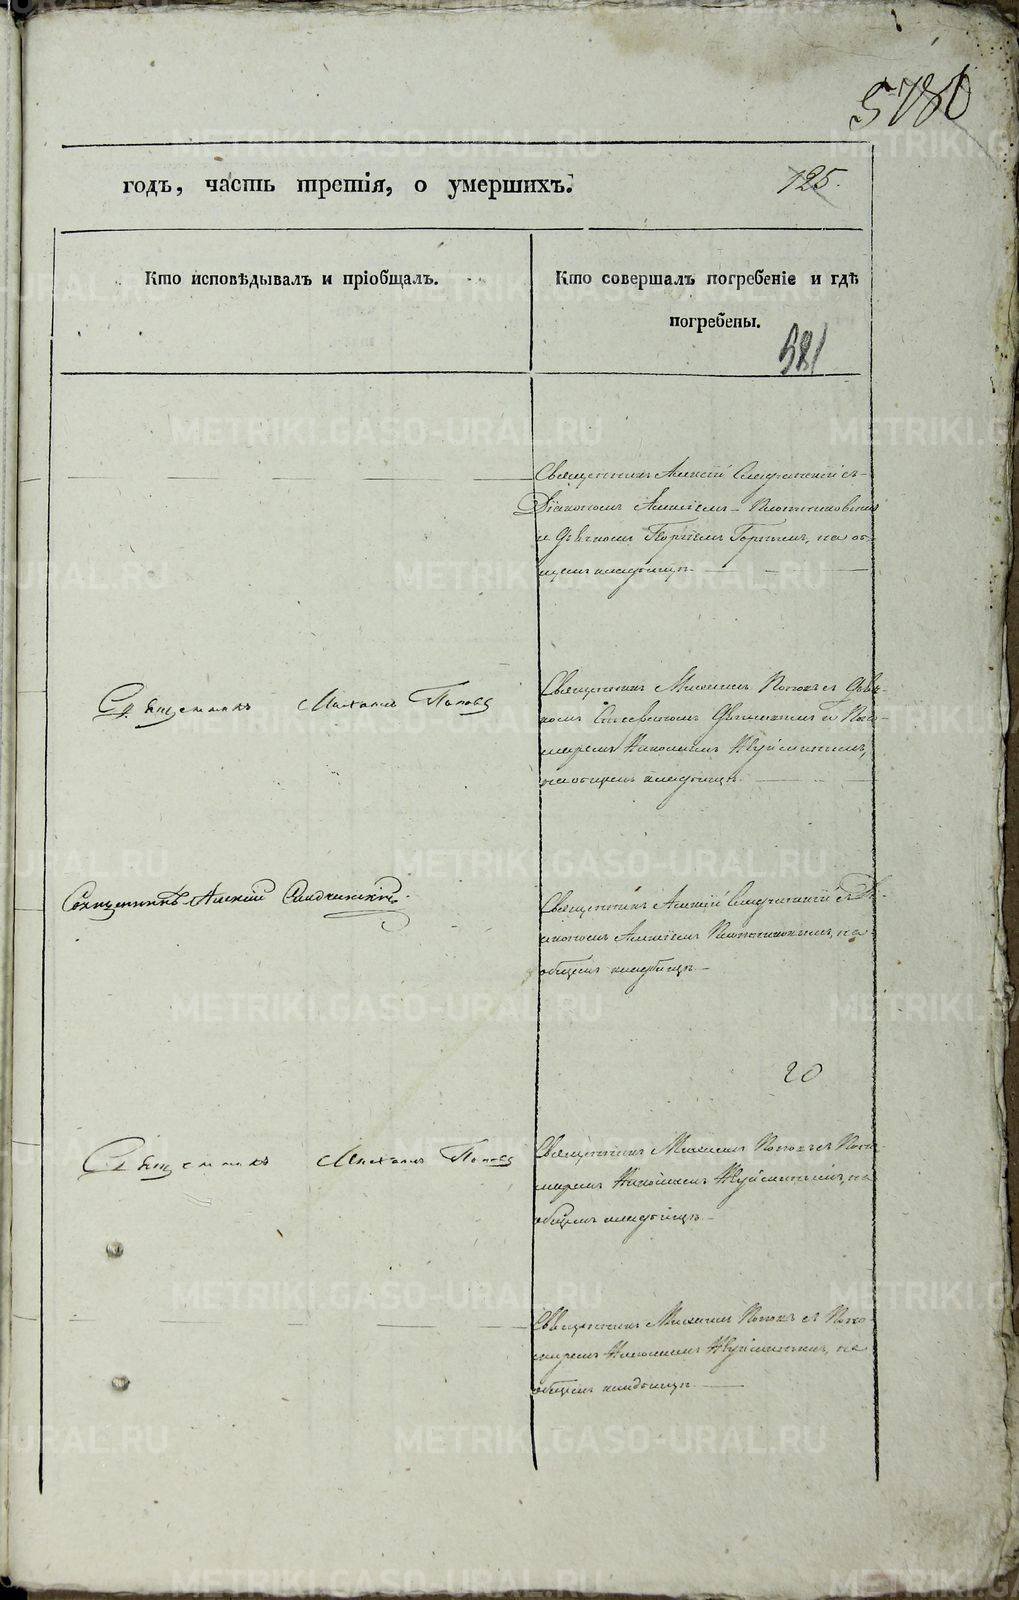 годъ, часть третія, о умершихъ.
125.
Кто исповѣдывалъ и пріобщалъ.
Кто совершалъ погребеніе и гдѣ
погребены.
581
Священникъ Алексій съ
Діакономъ Алексіемъ Плотниковымъ
и Дьячкомъ Георгіемъ на об-
щемъ кладбищѣ
Священникъ Михаилъ Поповъ
Священникъ Михаилъ Поповъ съ Дьяч-
комъ и Поно-
маремъ Николаемъ
на общемъ кладбищѣ
Священникъ Алексій
Священникъ Алексій съ Ді-
акономъ Алексіемъ Плотниковымъ, на
общемъ кладбищѣ
20
Священникъ Михаилъ Поповъ
Священникъ Михаилъ Поповъ съ Поно-
маремъ Николаемъ на
общемъ кладбищѣ
Священникъ Михаилъ Поповъ съ Поно-
маремъ Николаемъ на
общемъ кладбищѣ
METRIKI.GASO-URAL.RU